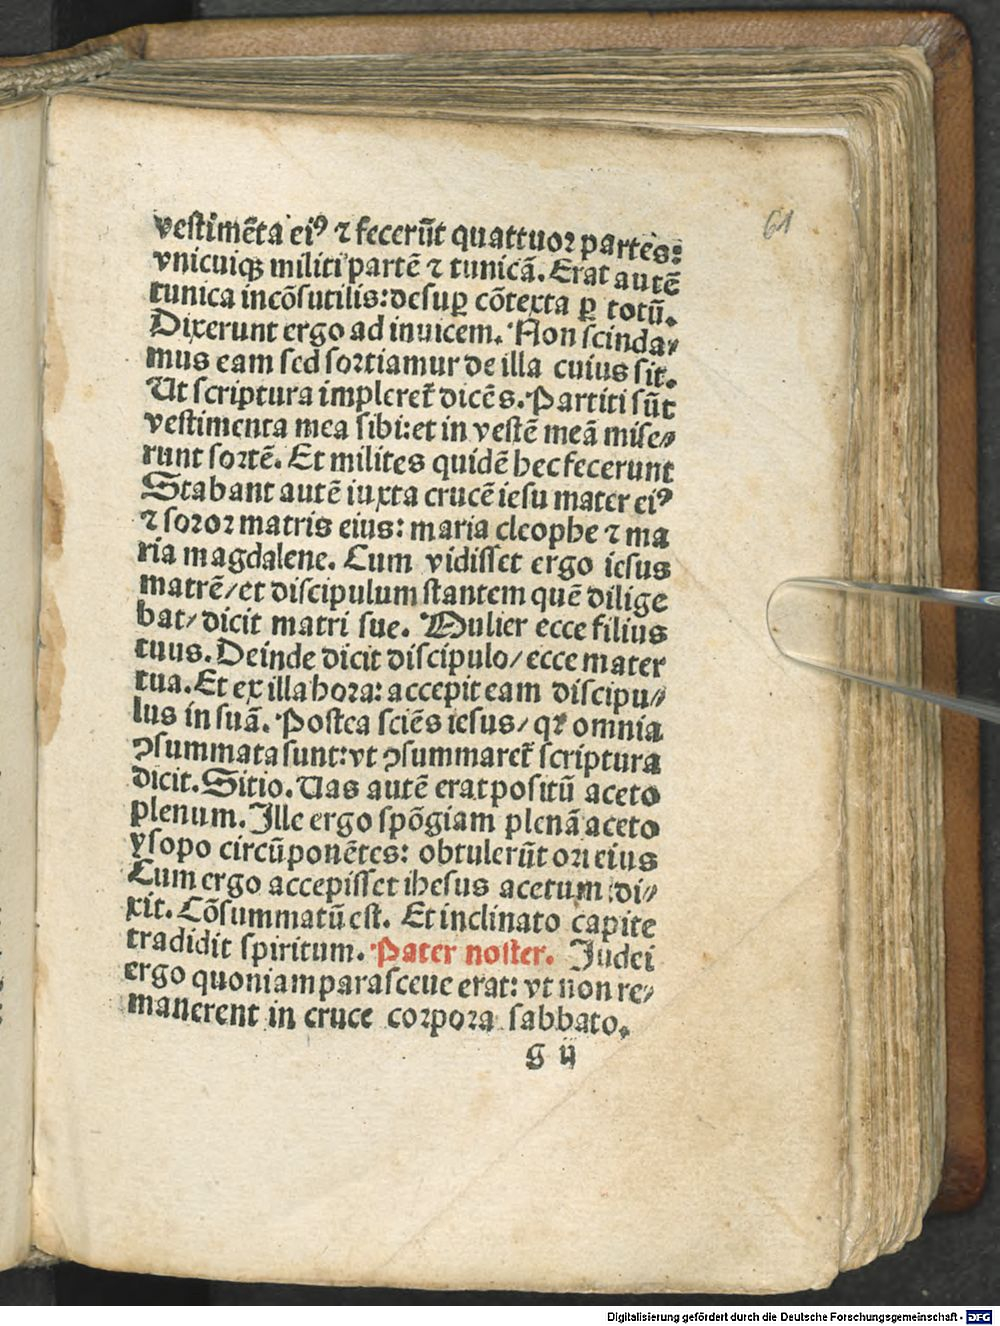 61
vestimēta eiꝰ ⁊ fecerūt quattuor partes:
vnicuiqꝫ militi partē ⁊ tunicā. Erat autē
tunica incōsutilis: desuꝑ cōtexta ꝑ totū.
Dixerunt ergo ad inuicem. Non scinda⸗
mus eam sed sortiamur de illa cuius sit.
Ut scriptura impleret᷑ dicēs. Partiti sūt
vestimenta mea sibi: et in vestē meā mise⸗
runt sortē. Et milites quidē hec fecerunt
Stabant autē iuxta crucē iesu mater eiꝰ
⁊ soror matris eius: maria cleophe ⁊ ma
ria magdalene. Cum vidisset ergo iesus
matrē/ et discipulum stantem quē dilige
bat/ dicit matri sue. Mulier ecce filius
tuus. Deinde dicit discipulo/ ecce mater
tua. Et ex illa hora: accepit eam discipu⸗
lus in suā. Postea sciēs iesus/ qꝛ omnia
ꝯsummata sunt: vt ꝯsummaret᷑ scriptura
dicit. Sitio. Uas autē erat positū aceto
plenum. Ille ergo spōgiam plenā aceto
ysopo circūponētes: obtulerūt ori eius
Cum ergo accepisset ihesus acetum: di⸗
xit. Cōsummatū est. Et inclinato capite
tradidit spiritum. Pater noster. Judei
ergo quoniam parasceue erat: vt non re⸗
manerent in cruce corpora sabbato.
g ij
Digitalisierung gefördert durch die Deutsche Forschungsgemeinschaft - DFG